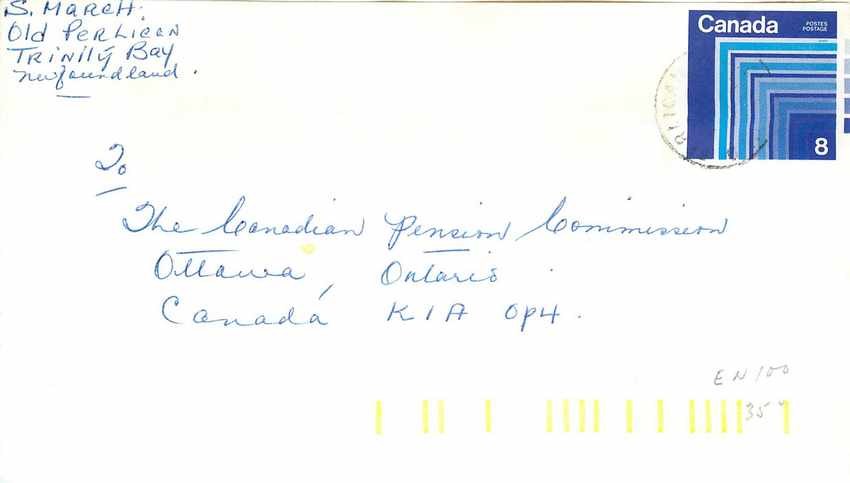 S. MARCH.
Old PERLICAN
TRINITY BAY
Newfoundland.
Canada
POSTES
POSTAGE
8
To
The Canadian Pension Commission
Ottawa, Ontario
Canada K1A OP4.
EN100
35